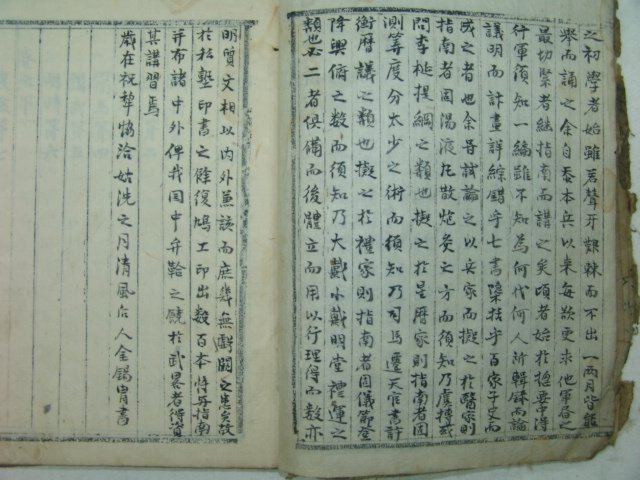 之初學者始雖茗聱牙棘而不出一兩月皆能
擧而誦之余自忝本兵以來每欲更求他軍書之
最切緊者継指南而講之矣頃者始於摠要中得
行軍須知一編雖不知為何代何人所輯錄而論
議明而計畫詳綜錯乎七書檃括乎百家子史而
成之者也余甞試論之以兵家而擬之於醫家則
指南者固湯液丸散炮灸之方而須知乃虞摶或
問李梴提綱之類也擬之於星曆家則指南者固
測筭度分太少之術而須知乃司馬遷天官書許
衡曆議之類也擬之於禮家則指南者固儀節登
降興俯之數而須知乃大戴小戴明堂禮運之
類也必二者俱備而後體立而用以行理得而數亦
明質文相以內外兼該而庶幾無虧闕之患玆故
於私塾印書之餘復鳩工印出數百本恃再指南
并布諸中外俾我国中弁鞈之競於武畧者得資
其講習焉
歲在祝犂協洽姑洗之月清風后人金錫胄書